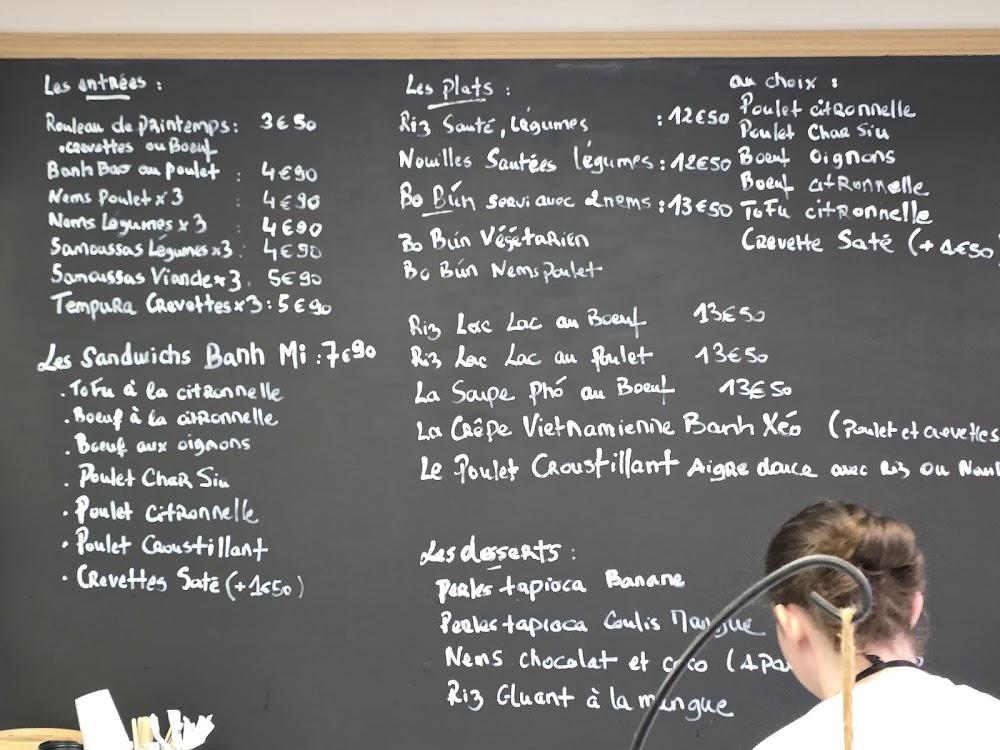 Les entrées :
Rouleau de Printemps : 3€50
.crevettes ou Boeuf
Banh Bao au poulet : 4€90
Nems Poulet x 3 : 4€90
Nems Légumes x 3 : 4€90
Samoussas Légumes x3 : 4€90
Samoussas Viande x 3 . 5€90
Tempura Crevettes x 3 : 5€90
Les Sandwichs Banh Mi : 7€90
. ToFu à la citronnelle
. Boeuf à la citronnelle
. Boeuf aux oignons
. Poulet Char Siu
. Poulet citronnelle
. Poulet Croustillant
. Crevettes Saté (+ 1€50)
Les Plats :
Riz Sauté, légumes : 12€50
Nouilles Sautées légumes : 12€50
Bo Bún servi avec 2nems : 13€50
Bo Bún Végétarien
Bo Bún Nems poulet
Riz Loc Lac au Boeuf 13€50
Riz Loc Lac au poulet 13€50
La Soupe Phó au Boeuf 13€50
La Crêpe Vietnamienne Banh Xéo (poulet et crevettes
Le Poulet Croustillant Aigre douce avec Riz ou
au choix :
Poulet citronnelle
Poulet Char Siu
Boeuf oignons
Boeuf citronnelle
ToFu citronnelle
Crevette Saté (+ 1€50)
Les desserts :
Perles tapioca Banane
Perles tapioca Coulis Mangue
Nems chocolat et coco
Riz Gluant à la mangue